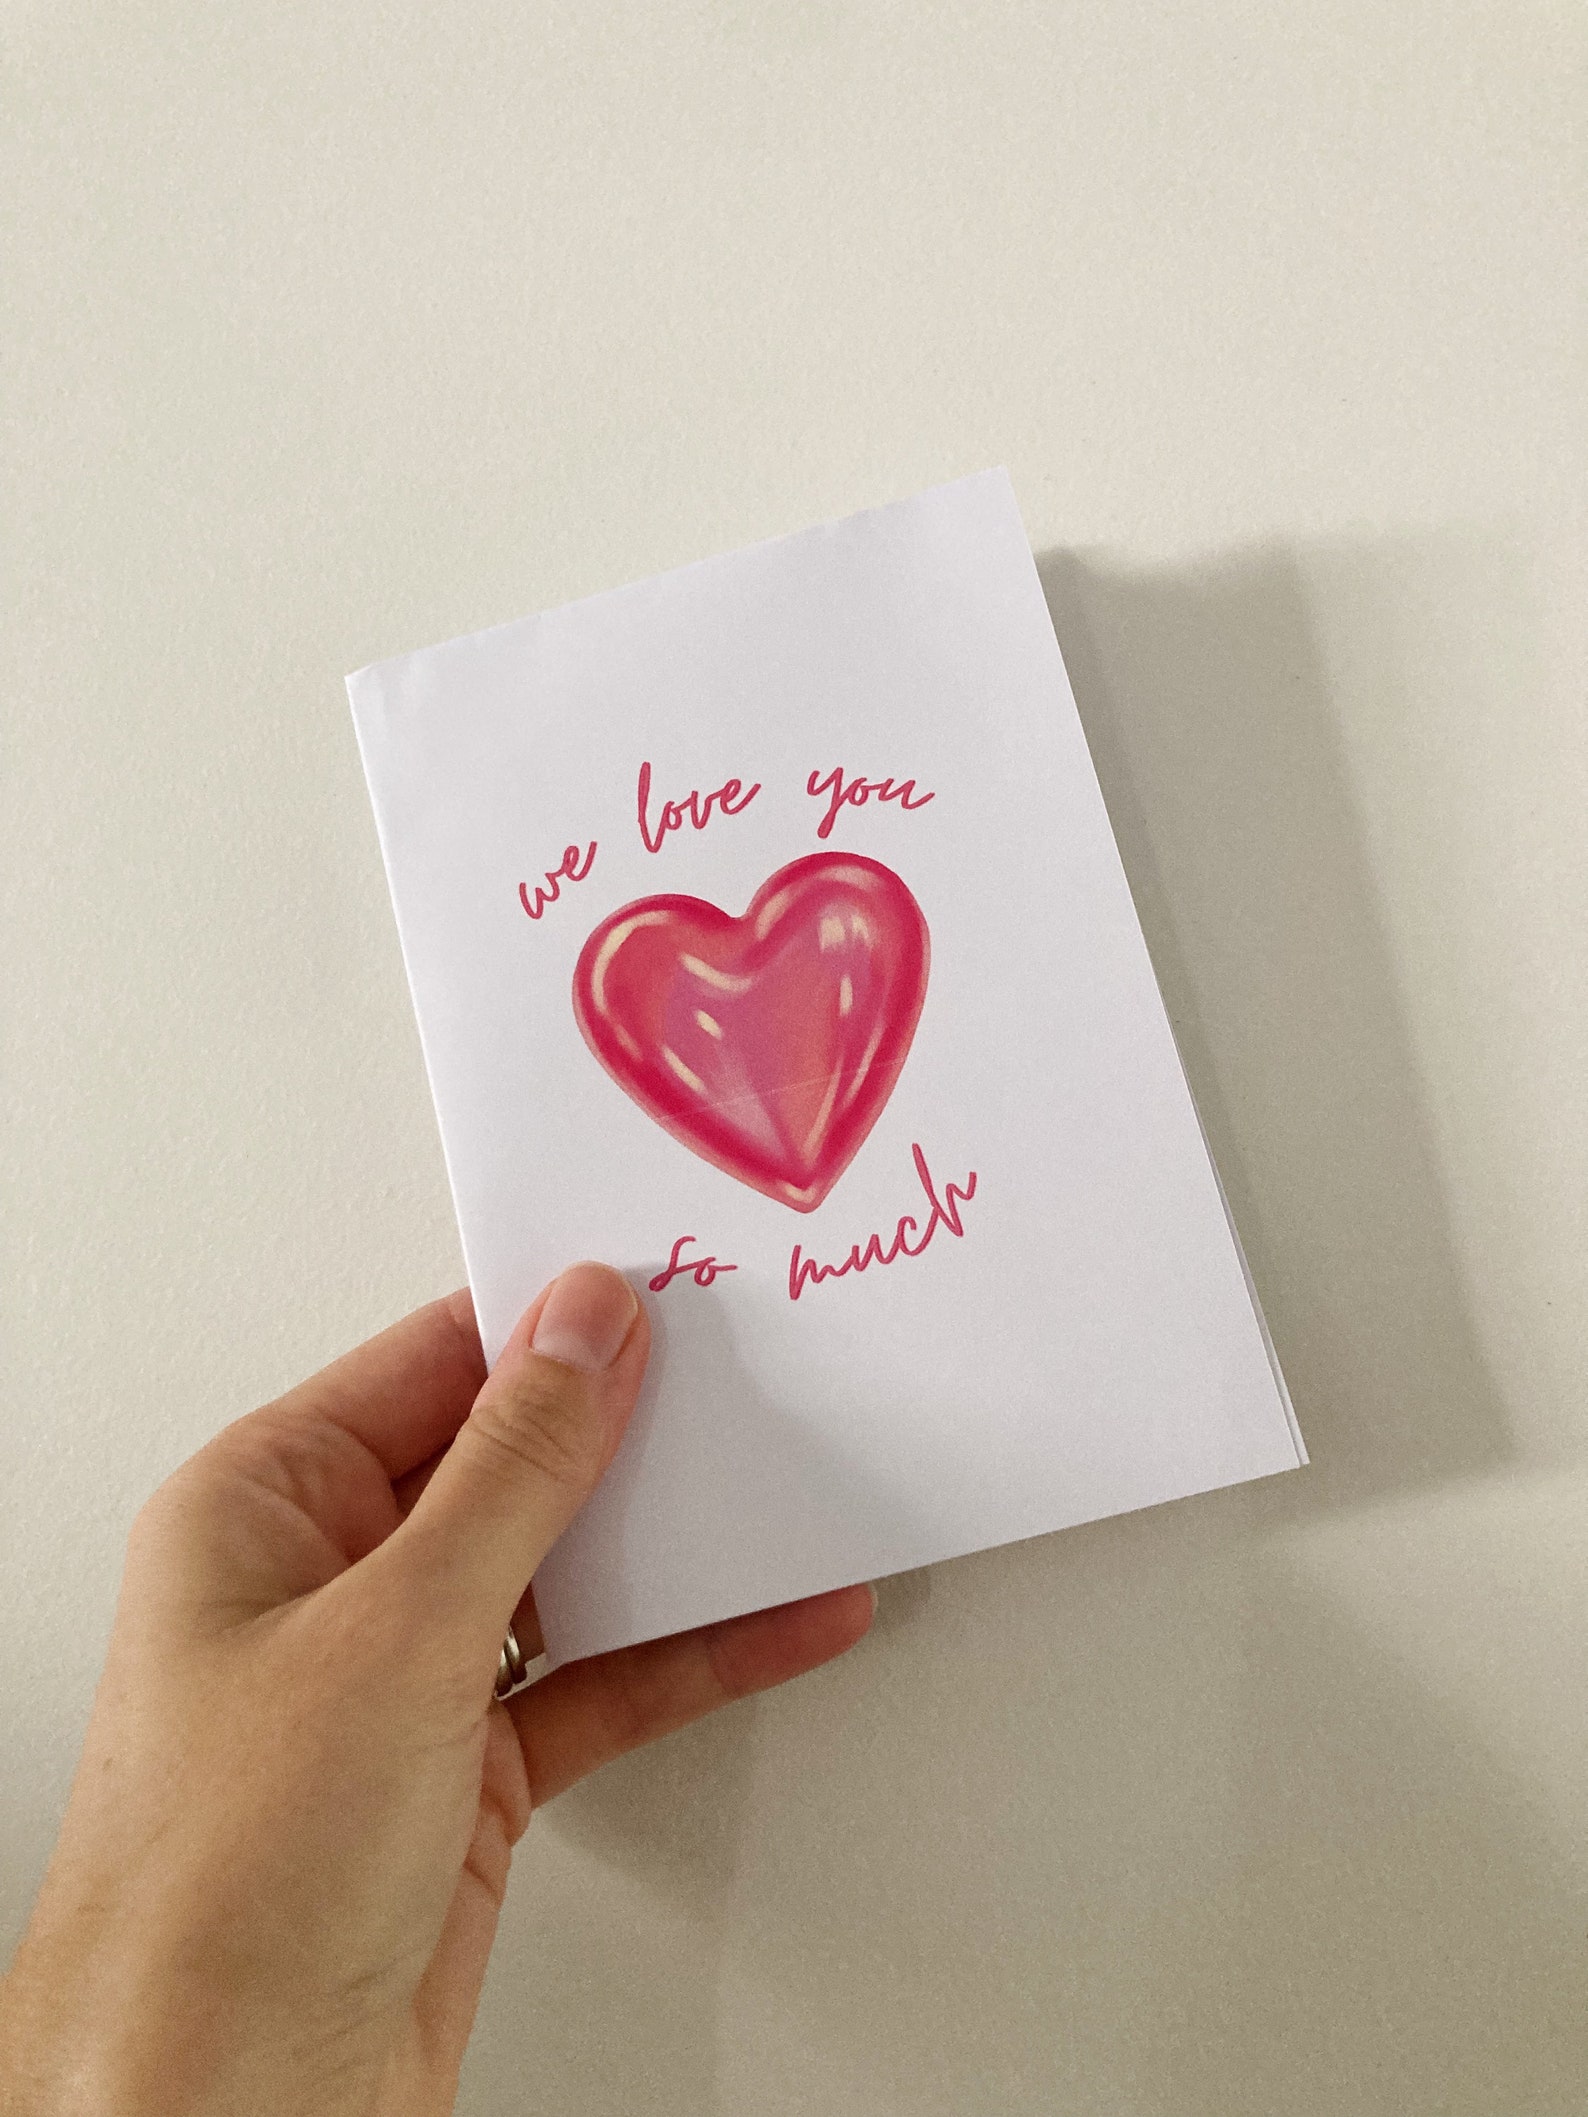 we love you
so much